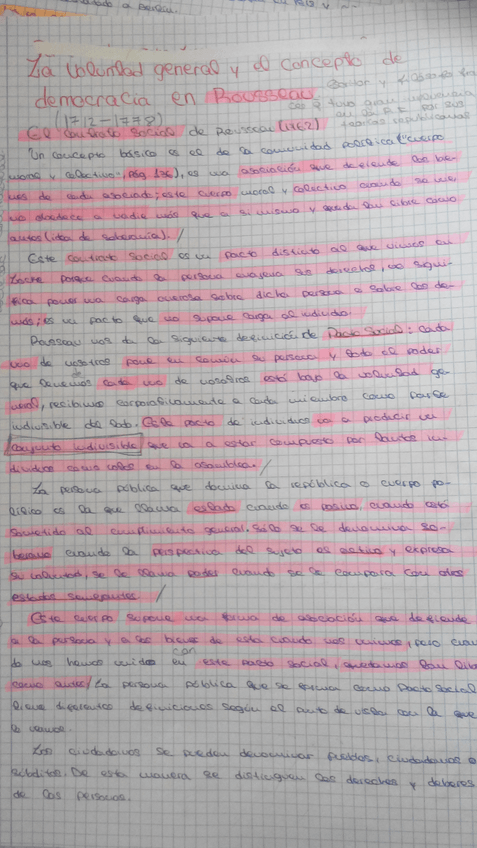 La voluntad general y el concepto de
democracia en Rousseau
(1712-1778)
El contrato social de Rousseau (1762)
Un concepto básico es el de la comunidad política ("cuerpo
moral y colectivo", pág 176), es una asociación que defiende los bie-
nes de cada asociado; este cuerpo moral y colectivo cuando se une
no obedece a nadie más que a si mismo y queda tan libre como
antes (idea de soberanía). /
Este contrato social es un pacto distinto al que vimos en
Locke porque cuando la persona enajena sus derechos, no signi-
fica poner una carga onerosa sobre dicha persona o sobre los de-
más; es un pacto que no supone carga al individuo.
Rousseau nos da la siguiente definición de Pacto Social: cada
uno de nosotros pone en común su persona y todo el poder
que tenemos cada uno de nosotros está bajo la voluntad ge-
neral, recibimos corporativamente a cada miembro como parte
indivisible del todo. Este pacto de individuos va a producir un
conjunto indivisible que va a estar compuesto por tantos in-
dividuos como votos en la asamblea. /
La persona pública que domina la república o cuerpo po-
lítico es la que llama estado cuando es pasivo, cuando está
sometido al cumplimiento general. Solo se le denomina so-
berano cuando la perspectiva del sujeto es activo y expresa
su voluntad, se le llama poder cuando se le compara con otros
estados semejantes. /
Este cuerpo supone una forma de asociación que defiende
a la persona y a los bienes de esta cuando nos unimos, pero cuan-
do nos hemos unido en con este pacto social, quedamos tan libres
como antes / La persona pública que se forma como Pacto Social
tiene diferentes definiciones según el punto de vista con la que
lo veamos.
Los ciudadanos se pueden denominar pueblos, ciudadanos o
súbditos. De esta manera se distinguen los derechos y deberes
de las personas.